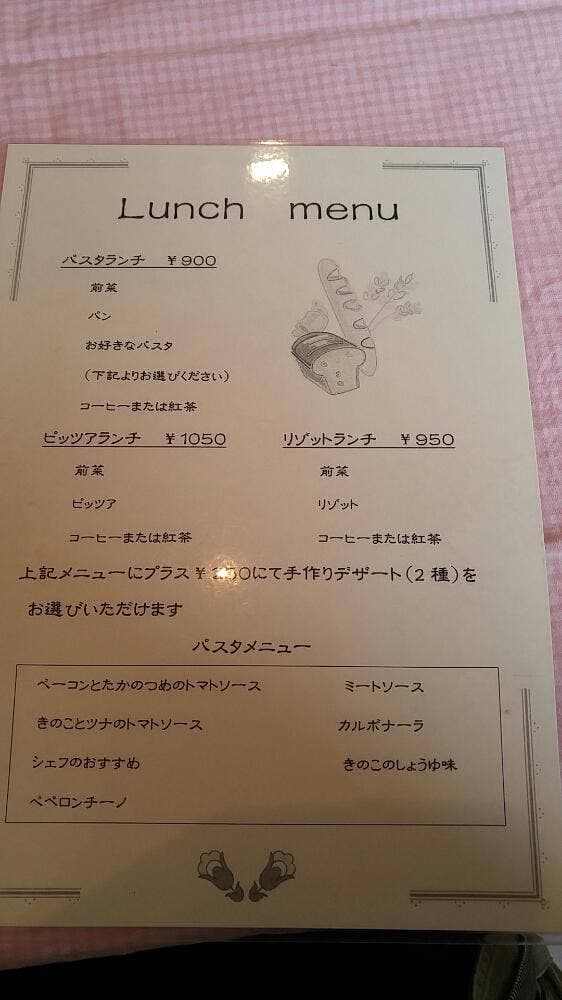 Lunch menu
パスタランチ ￥900
前菜
パン
お好きなパスタ
（下記よりお選びください）
コーヒーまたは紅茶
ピッツアランチ ￥1050
前菜
ピッツア
コーヒーまたは紅茶
リゾットランチ ￥950
前菜
リゾット
コーヒーまたは紅茶
上記メニューにプラス￥にて手作りデザート（2種）を
お選びいただけます
パスタメニュー
ベーコンとたかのつめのトマトソース ミートソース
きのことツナのトマトソース カルボナーラ
シェフのおすすめ きのこのしょうゆ味
ペペロンチーノ